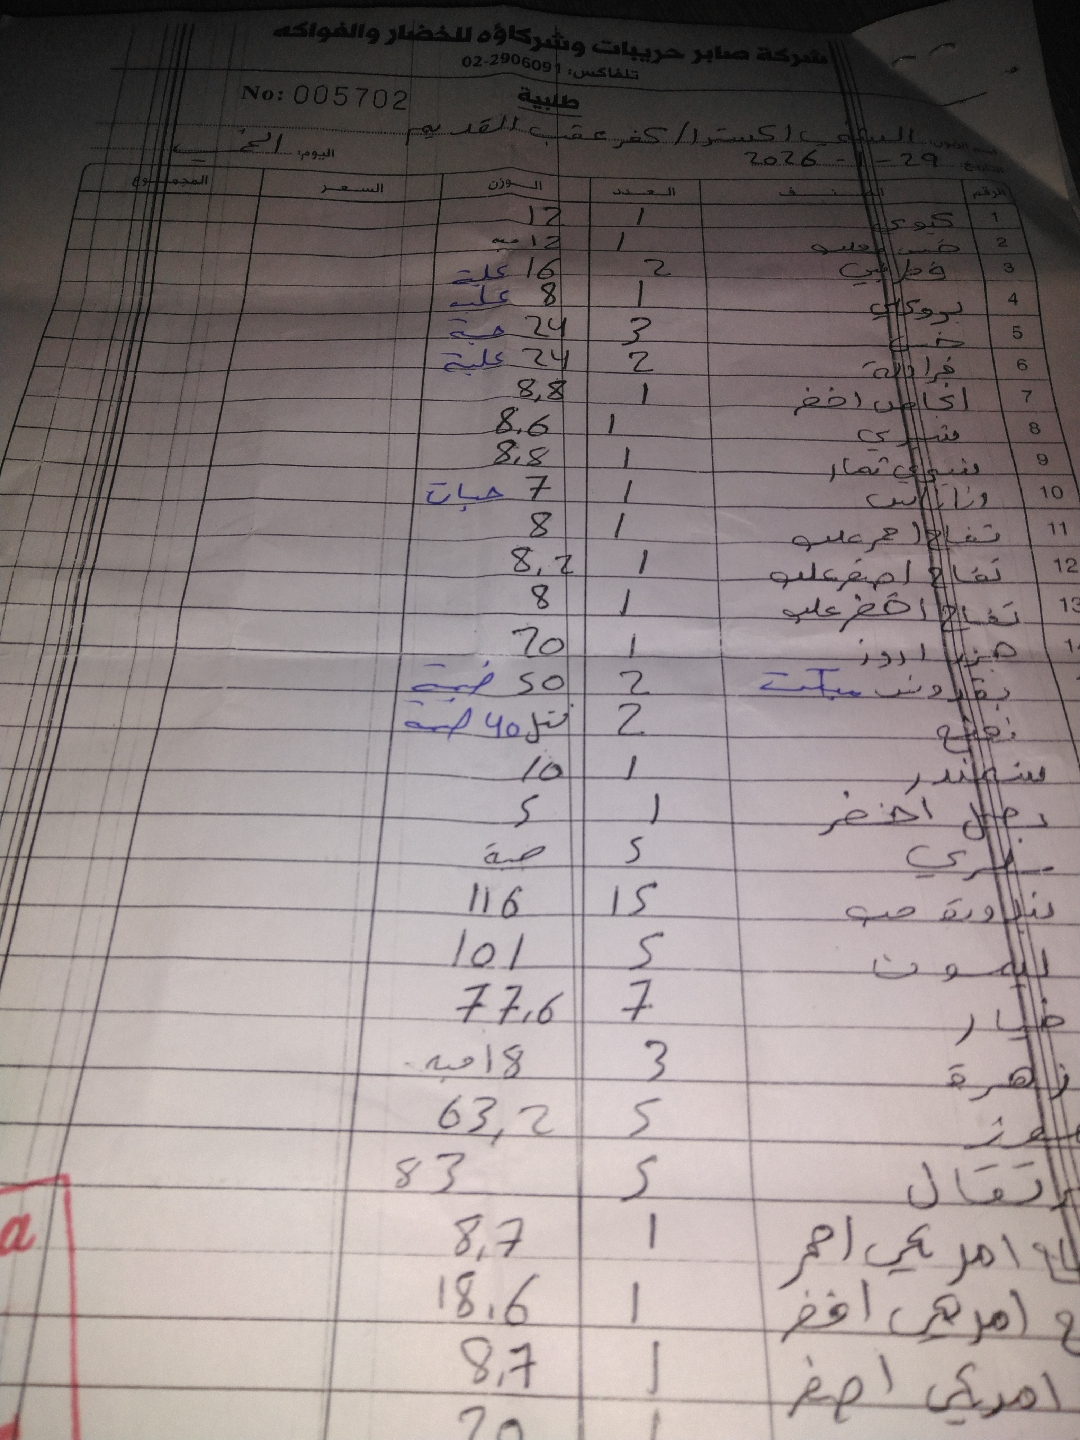 شركة صابر حريبات وشركاؤه للخضار والفواكه
تلفاكس: 02-2906091
طلبية
No: 005702
اكسترا / كفر عقب القديم
اليوم:
29 - 1 - 2026
الرقم الصنف العدد الوزن السعر المجموع
1 كيوي 1 12
2 1 12 حبه
3 2 16 علبة
4 بروكلي 1 8 علبه
5 خس 3 24 حبة
6 فراولة 2 24 علبة
7 انجاص اخضر 1 8,8
8 شيري 1 8.6
9 1 8,8
10 1 7 حبات
11 تفاح احمر علب 1 8
12 تفاح اصفر علب 1 8,2
13 تفاح اخضر علب 1 8
1 20
بقدونس 2 50 ضمة
نعنع 2 40 ضمة
شمندر 1 10
بصل اخضر 1 5
5
بندورة حب 15 116
ليمون 5 101
خيار 7 77,6
زهرة 3 18 حبه
موز 5 63,2
برتقال 5 83
امريكي احمر 1 8,7
امريكي اخضر 1 18,6
امريكي اصفر 1 8,7
1 20
a